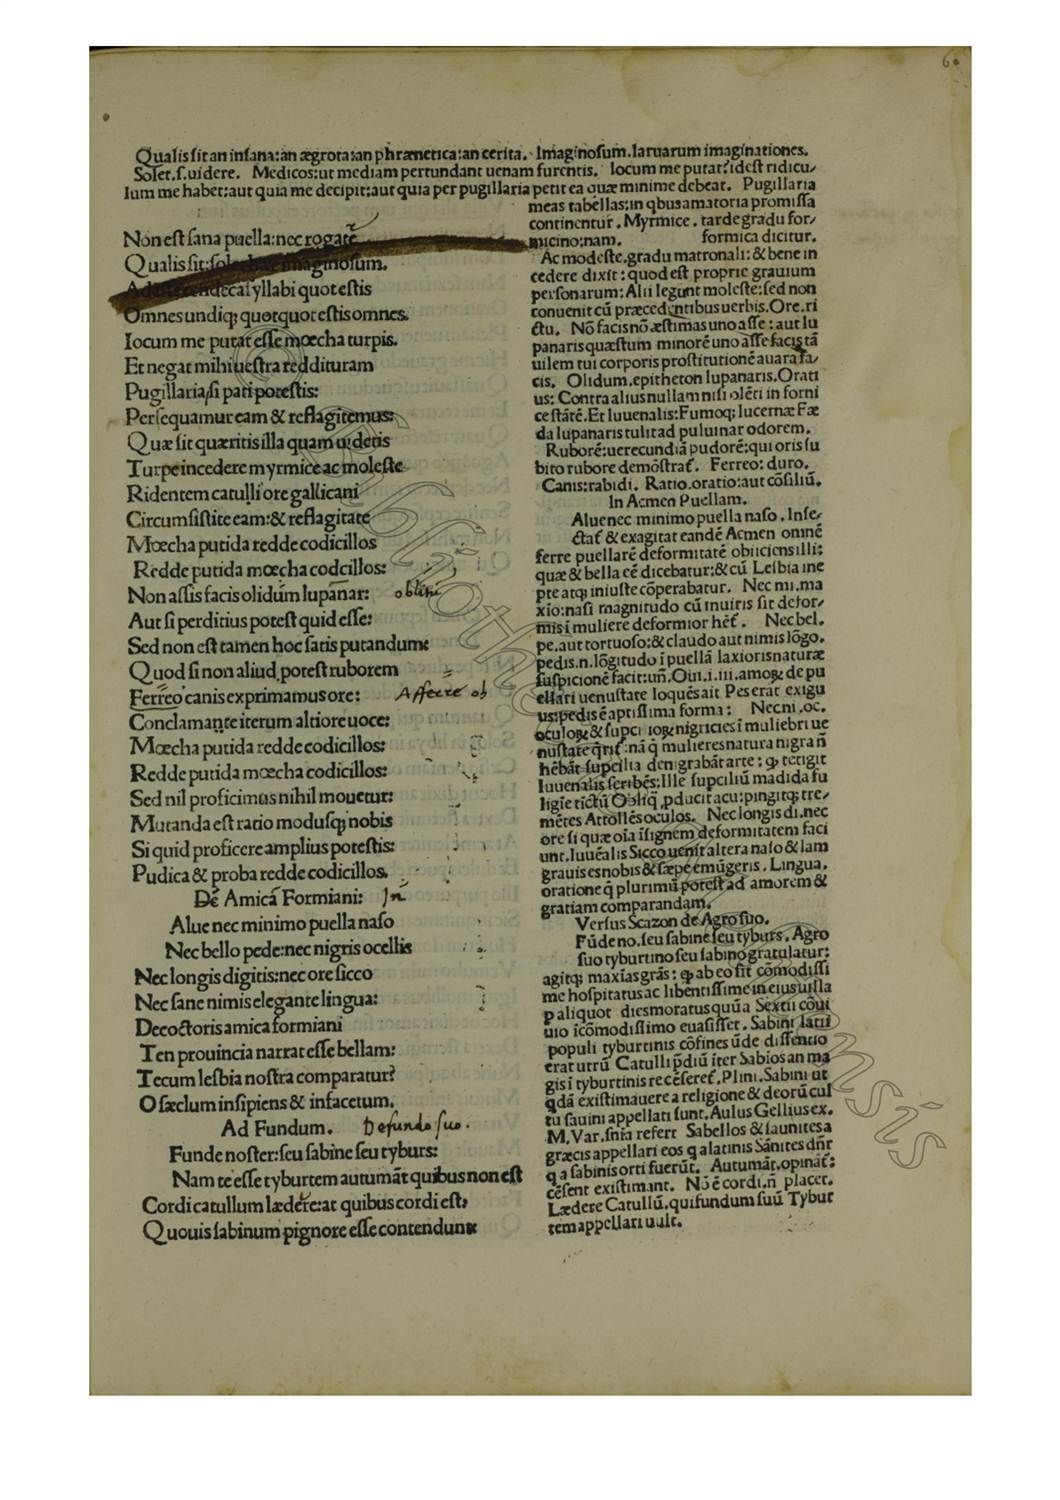 6
Qualis sit an insana: an ægrota: an phrænetica: an cerita. Imaginosum. laruarum imaginationes.
Solet. s. uidere. Medicos: ut mediam pertundant uenam furentis. Iocum me putat: idest ridicu/
lum me habet: aut quia me decipit: aut quia per pugillaria petit ea quæ minime debeat. Pugillaria
Non est sana puella: nec rogate
Qualis sit: imaginosum.
yllabi quot estis
Omnes undiq; quotquot estis omnes.
Iocum me putat esse mœcha turpis.
Et negat mihi uestra reddituram
Pugillaria/si pati potestis:
Persequamur eam & reflagitemus:
Quæ sit quæritis illa quam uidetis
Turpe incedere myrmice ac moleste
Ridentem catulli ore gallicani
Circumsistite eam: & reflagitate
Mœcha putida redde codicillos
Redde putida mœcha codcillos:
Non assis facis olidúm lupanar: oblim
Aut si perditius potest quid esse:
Sed non est tamen hoc satis putandum:
Quod si non aliud potest ruborem
Ferreo canis exprimamus ore: Affecte ob
Conclamante iterum altiore uoce:
Mœcha putida redde codicillos:
Redde putida mœcha codicillos:
Sed nil proficimus nihil mouetur:
Mutanda est ratio modusq; nobis
Si quid proficere amplius potestis:
Pudica & proba redde codicillos.
De Amicá Formiani: In
Alue nec minimo puella naso
Nec bello pede: nec nigris ocellis
Nec longis digitis: nec ore sicco
Nec sane nimis elegante lingua:
Decoctoris amica formiani
Ten prouincia narrat esse bellam:
Tecum lesbia nostra comparatur?
O sæclum insipiens & infacetum.
Ad Fundum. De fundo suo.
Funde noster: seu sabine seu tyburs:
Nam te esse tyburtem autumāt quibus non est
Cordi catullum lædere: at quibus cordi est,
Quouis sabinum pignore esse contendunt
meas tabellas: in qbus amatoria promissa
continentur. Myrmice. tarde gradu for/
micino: nam. formica dicitur.
Ac modeste. gradu matronali: & bene in
cedere dixit: quod est proprie grauium
personarum: Alii legunt moleste: sed non
conuenit cū præcedentibus uerbis. Ore. ri
ctu. Nō facis nō æstimas uno asse: aut lu
panaris quæstum minorē uno asse facis tā
uilem tui corporis prostitutionē auara fa/
cis. Olidum. epitheton lupanaris. Orati
us: Contra alius nullam nisi olēti in forni
ce stātē. Et Iuuenalis: Fumoq; lucernæ Fæ
da lupanaris tulit ad puluinar odorem.
Ruborē: uerecundiā pudorē: qui oris su
bito rubore demōstrat. Ferreo: duro.
Canis: rabidi. Ratio. oratio: aut cōsiliū.
In Acmen Puellam.
Alue nec minimo puella naso. Inse/
ctat & exagitat eandē Acmen omnē
ferre puellarē deformitatē obiiciens illi:
quæ & bella cē dicebatur: & cū Lesbia ine
pte atq; iniuste cōperabatur. Nec mi. ma
xio: nasi magnitudo cū in uiris sit defor/
mis i muliere deformior hēt. Nec bel.
pe. aut tortuoso: & claudo aut nimis lōgo.
pedis. n. lōgitudo i puellā laxioris naturæ
suspicionē facit: uñ. Oui. i. iii. amoꝝ de pu
ellari uenustate loquēs ait Pes erat exigu
us: pedis ē aptissima forma: Nec ni. oc.
oculoꝝ & supcilioꝝ nigricies i muliebri ue
nustate qrit: nā q mulieres natura nigra ñ
hēbāt supcilia denigrabāt arte: ꝙ tetigit
Iuuenalis scribēs: Ille supciliū madida fu
ligīe tictū Obliq pducit acu: pingitq; tre/
mētes Attollēs oculos. Nec longis di. nec
ore si quæ oia īsignem deformitatem faci
unt. Iuuēalis Sicco uenit altera naso & Iam
grauis es nobis & sæpe emūgeris. Lingua.
oratione q plurimū potest ad amorem &
gratiam comparandam.
Versus Scazon de Agro suo.
Fūde no. seu sabine seu tyburs. Agro
suo tyburtino seu sabino gratulatur:
agitq; maxias grās: ꝙ ab eo sit cōmodissi
me hospitatus ac libentissime in eius uilla
p aliquot dies moratus quū a Sextii cōui
uio icōmodissimo euasisset. Sabini latii
populi tyburtinis cōfines ūde dissentio
erat utrū Catulli pdiū iter Sabios an ma
gis i tyburtinis recēseret. Plini. Sabini ut
qdā existimauere a religione & deorū cul
tu sauini appellati sunt. Aulus Gellius ex.
M. Var. sñia refert Sabellos & saunites a
græcis appellari eos q a latinis Sānites dñr
q a sabinis orti fuerūt. Autumāt. opinat:
cēsent existimant. Nō ē cordi. ñ placet.
Lædere Catullū. qui fundum suū Tybur
tem appellari uult.